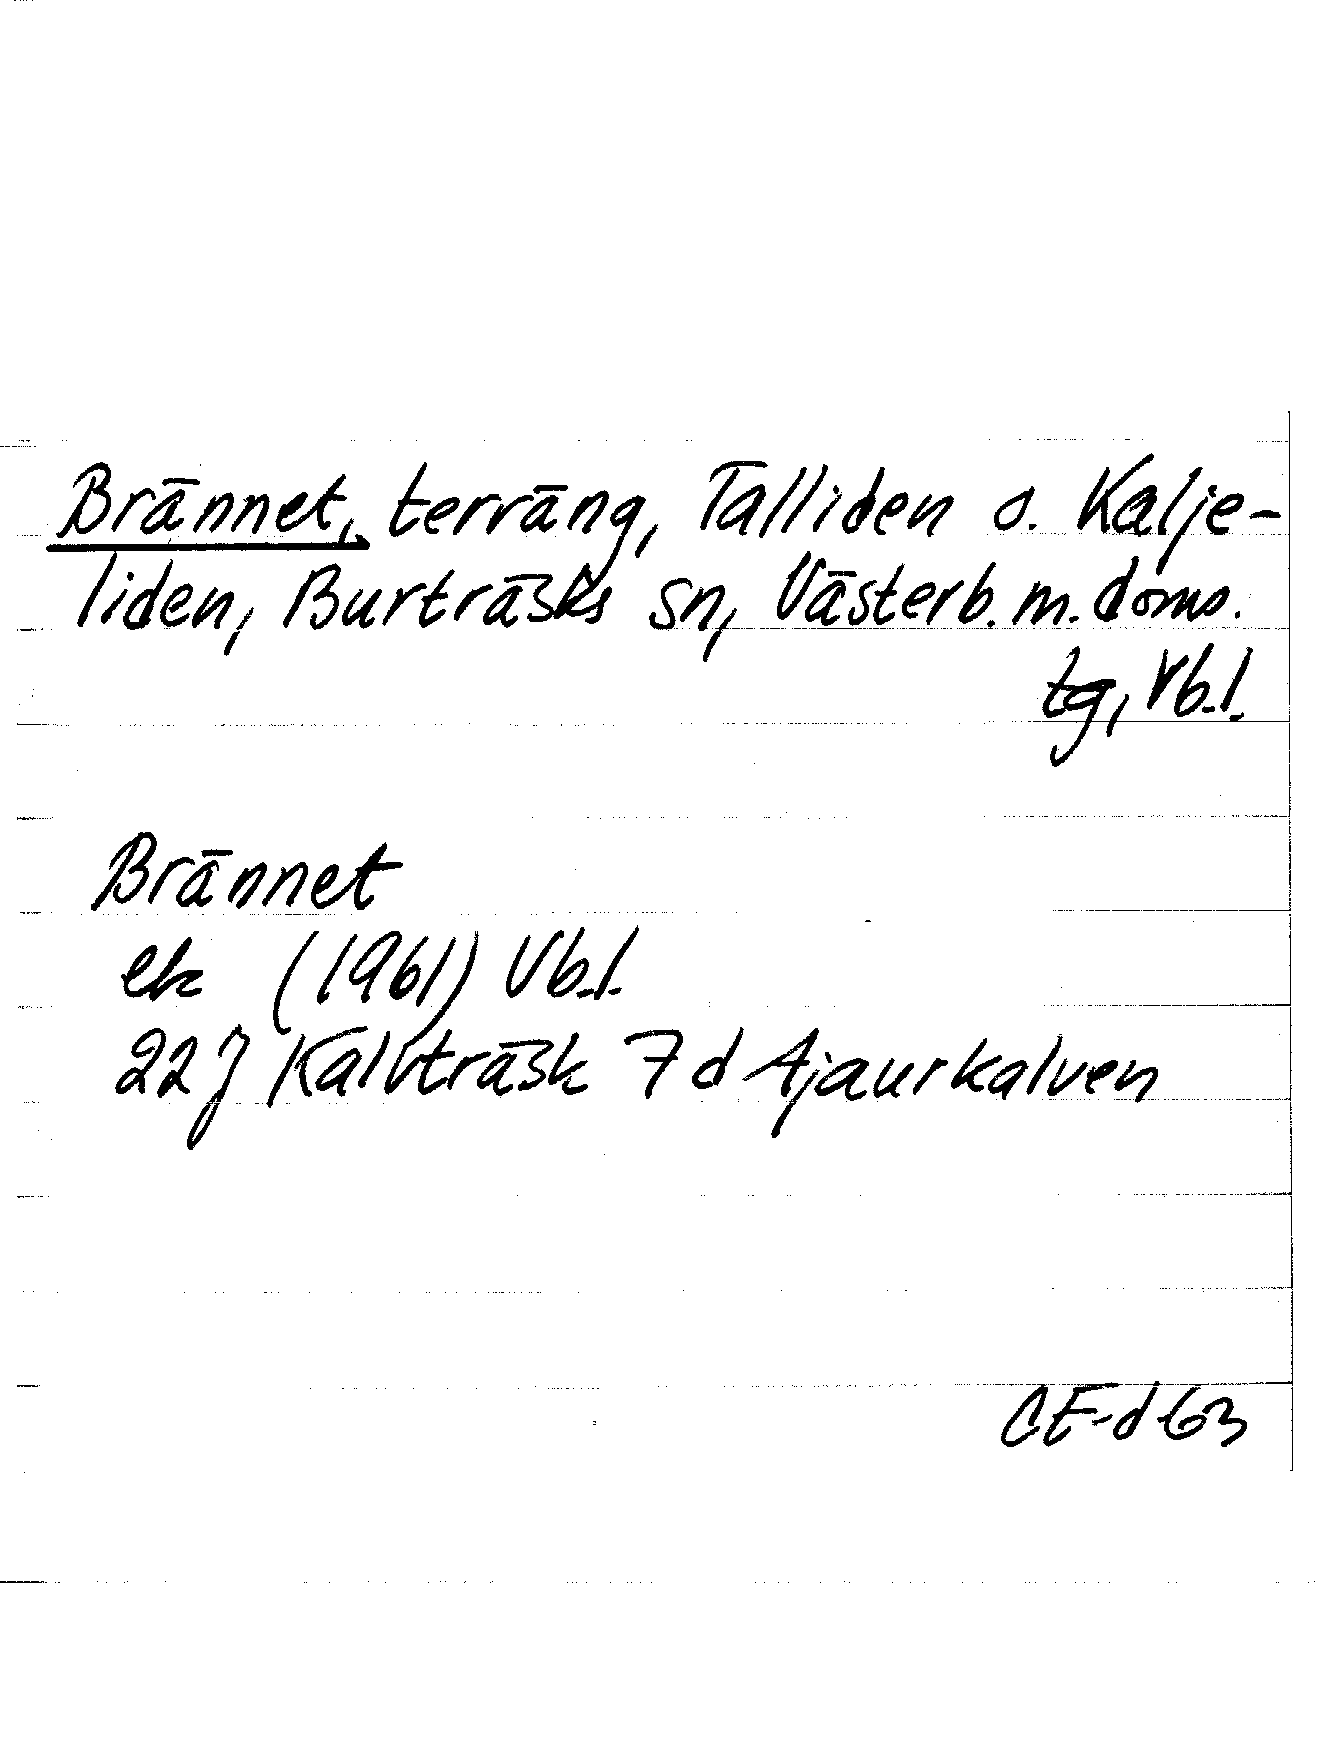 Brännet, terräng, Talliden o. Kalje-
liden, Burträsks sn, Västerb. m. doms.
tg, Vb.l.
Brännet
ek (1961) Vb.l.
22J Kalvträsk 7d Ajaurkalven
CE-d 63